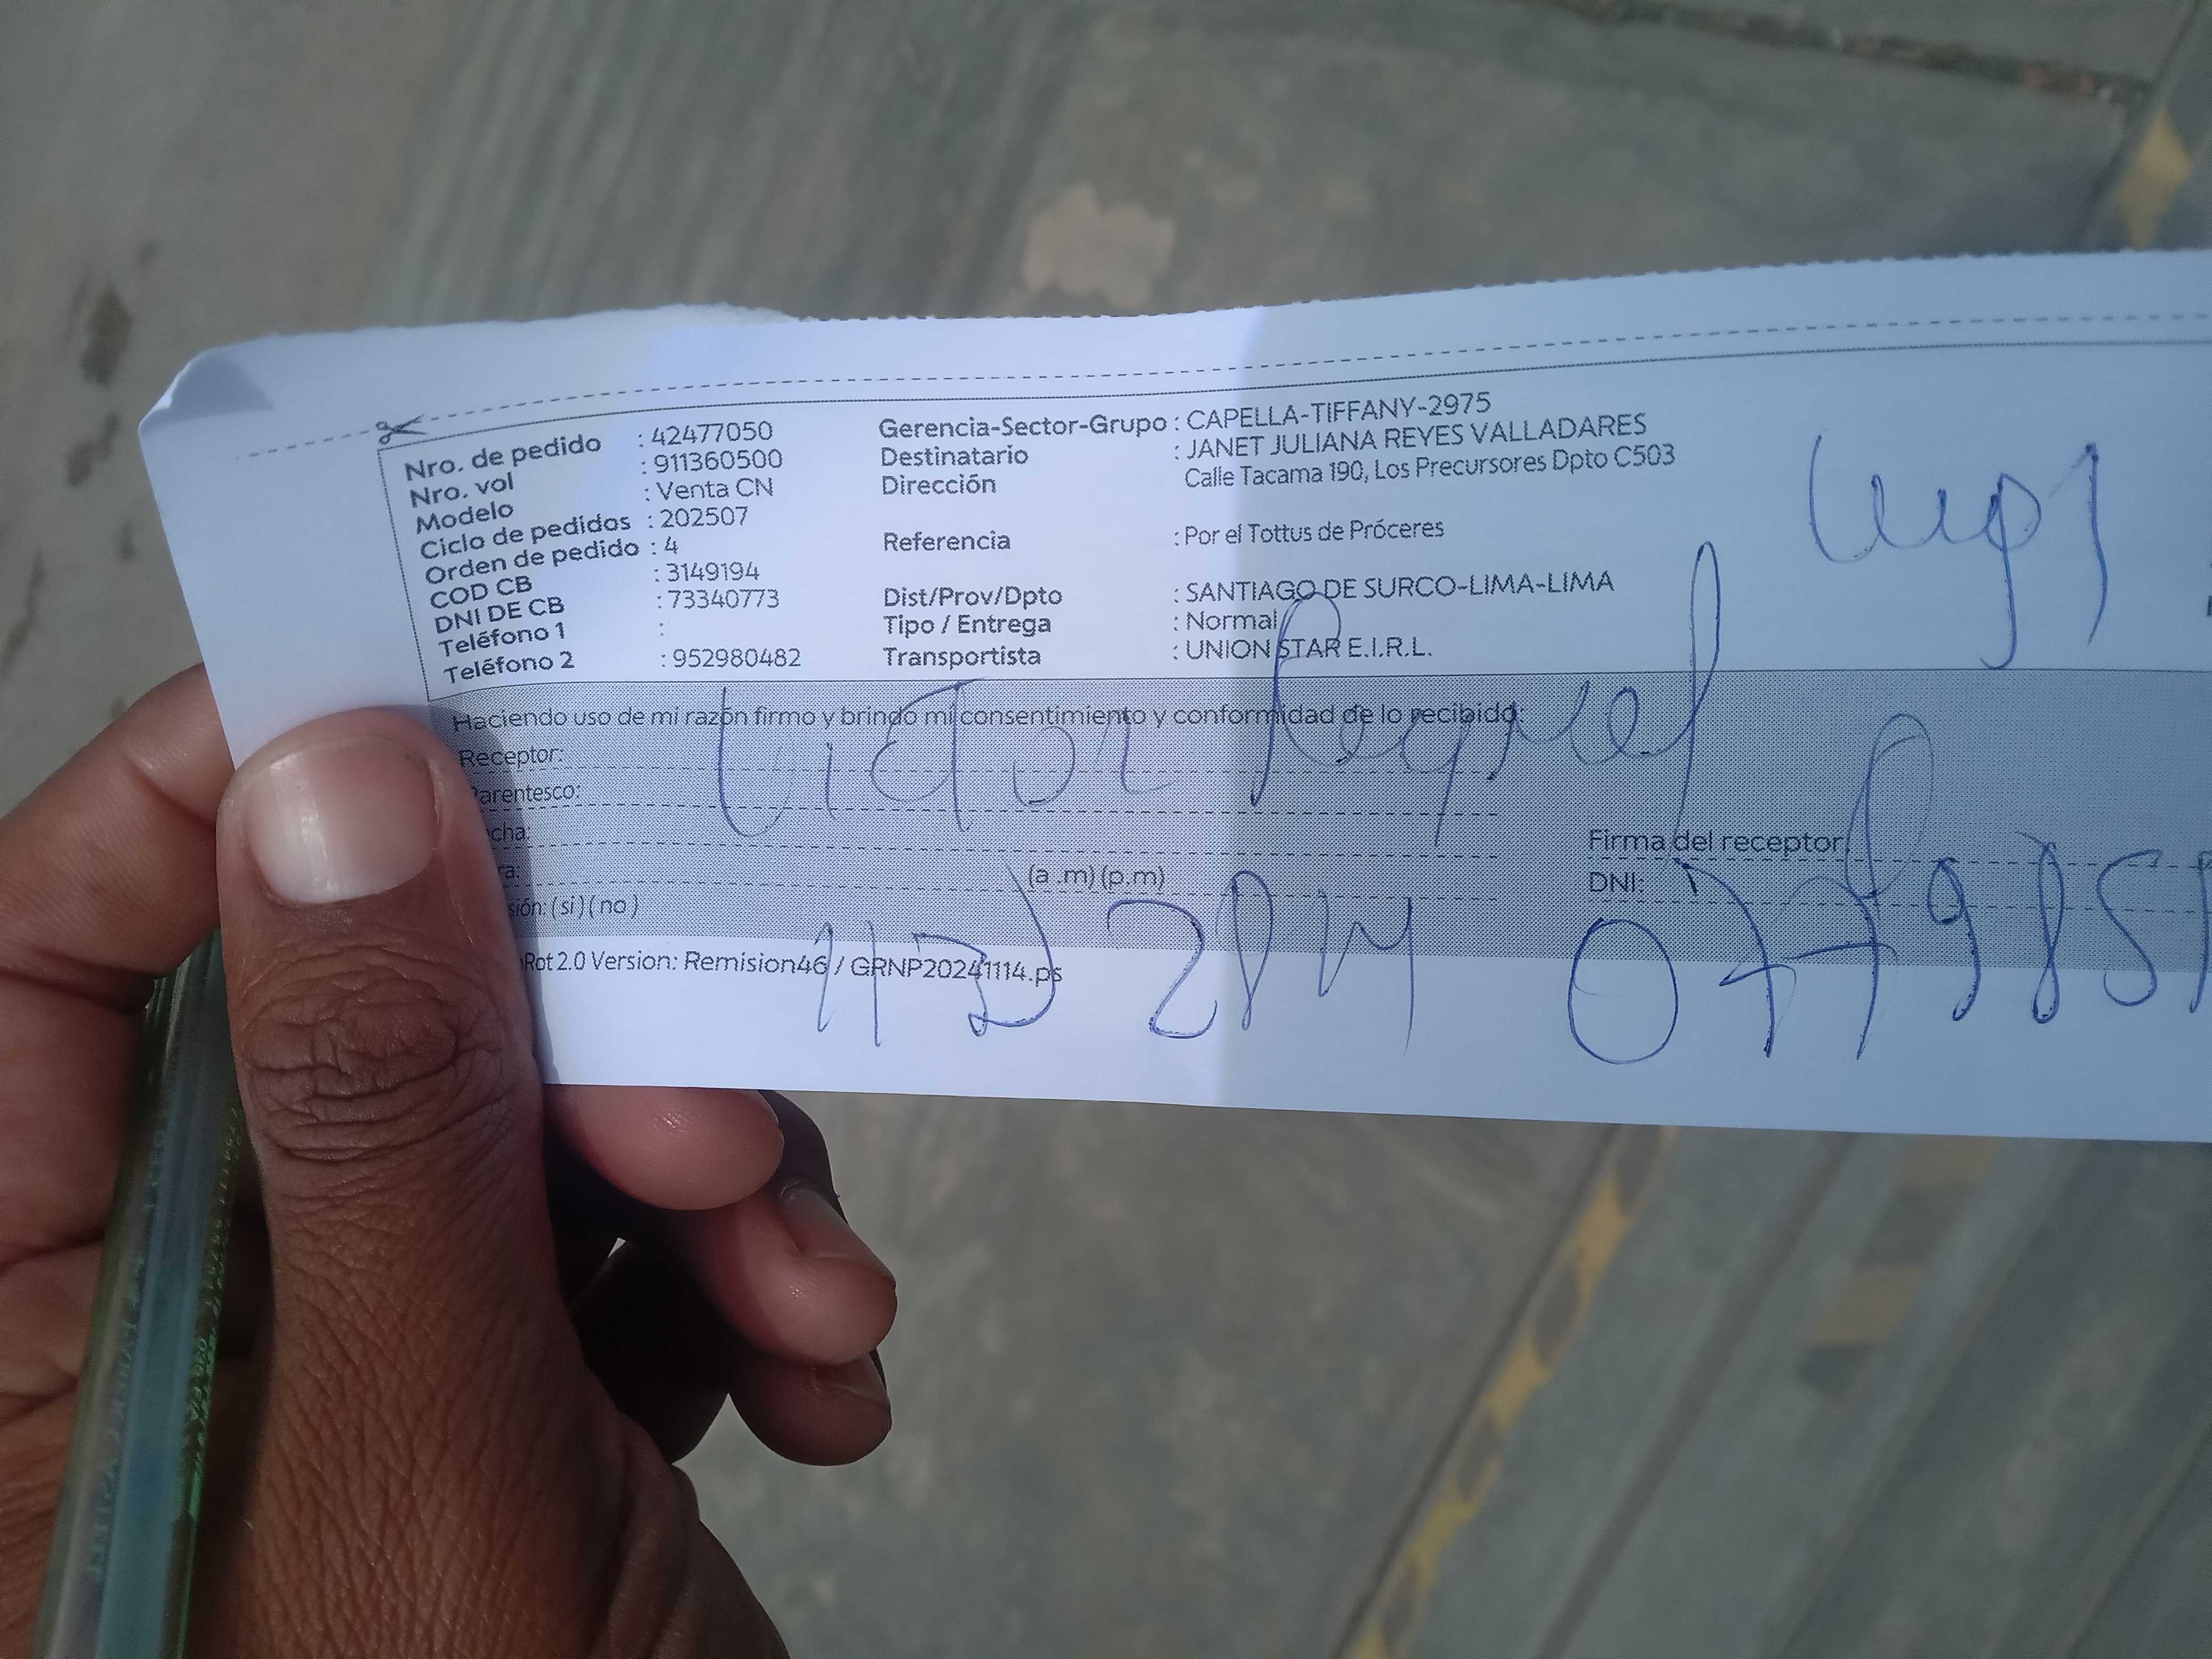 Nro. de pedido : 42477050
Nro. vol : 911360500
Modelo : Venta CN
Ciclo de pedidos : 202507
Orden de pedido : 4
COD CB : 3149194
DNI DE CB : 73340773
Teléfono 1 :
Teléfono 2 : 952980482
Gerencia-Sector-Grupo : CAPELLA-TIFFANY-2975
Destinatario : JANET JULIANA REYES VALLADARES
Dirección Calle Tacama 190, Los Precursores Dpto C503
Referencia : Por el Tottus de Próceres
Dist/Prov/Dpto : SANTIAGO DE SURCO-LIMA-LIMA
Tipo / Entrega : Normal
Transportista : UNION STAR E.I.R.L.
Haciendo uso de mi razón firmo y brindo mi consentimiento y conformidad de lo recibido:
Receptor:
Parentesco:
cha:
ra: (a .m) (p.m)
sión: ( si ) ( no )
Firma del receptor
DNI:
Rot 2.0 Version: Remision46 / GRNP20241114.ps